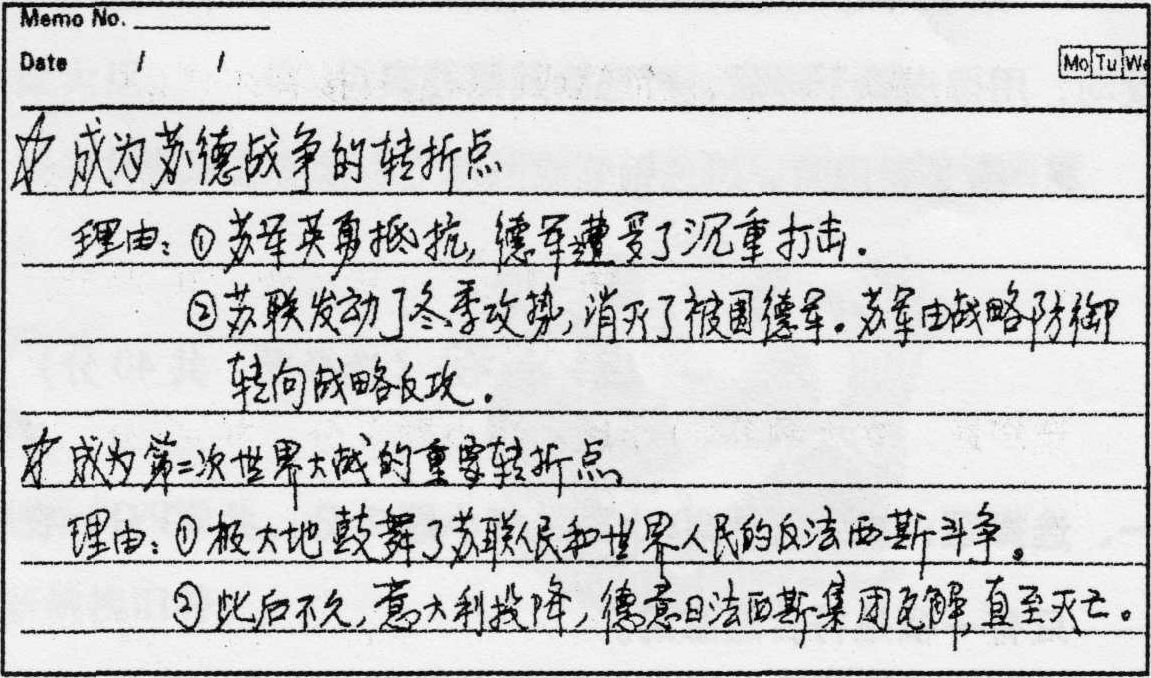 Memo No.
Date / /
Mo Tu We
☆ 成为苏德战争的转折点
理由：①苏军英勇抵抗，德军遭受了沉重打击。
②苏联发动了冬季攻势，消灭了被围德军。苏军由战略防御
转向战略反攻。
☆ 成为第二次世界大战的重要转折点
理由：①极大地鼓舞了苏联人民和世界人民的反法西斯斗争。
②此后不久，意大利投降，德意日法西斯集团瓦解，直至灭亡。